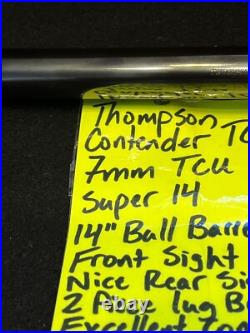 Thompson
Contender TC
7mm TCU
Super 14
14" Bull Barre
Front Sight
Nice Rear Si
2 Piece lug B
Excellent Co